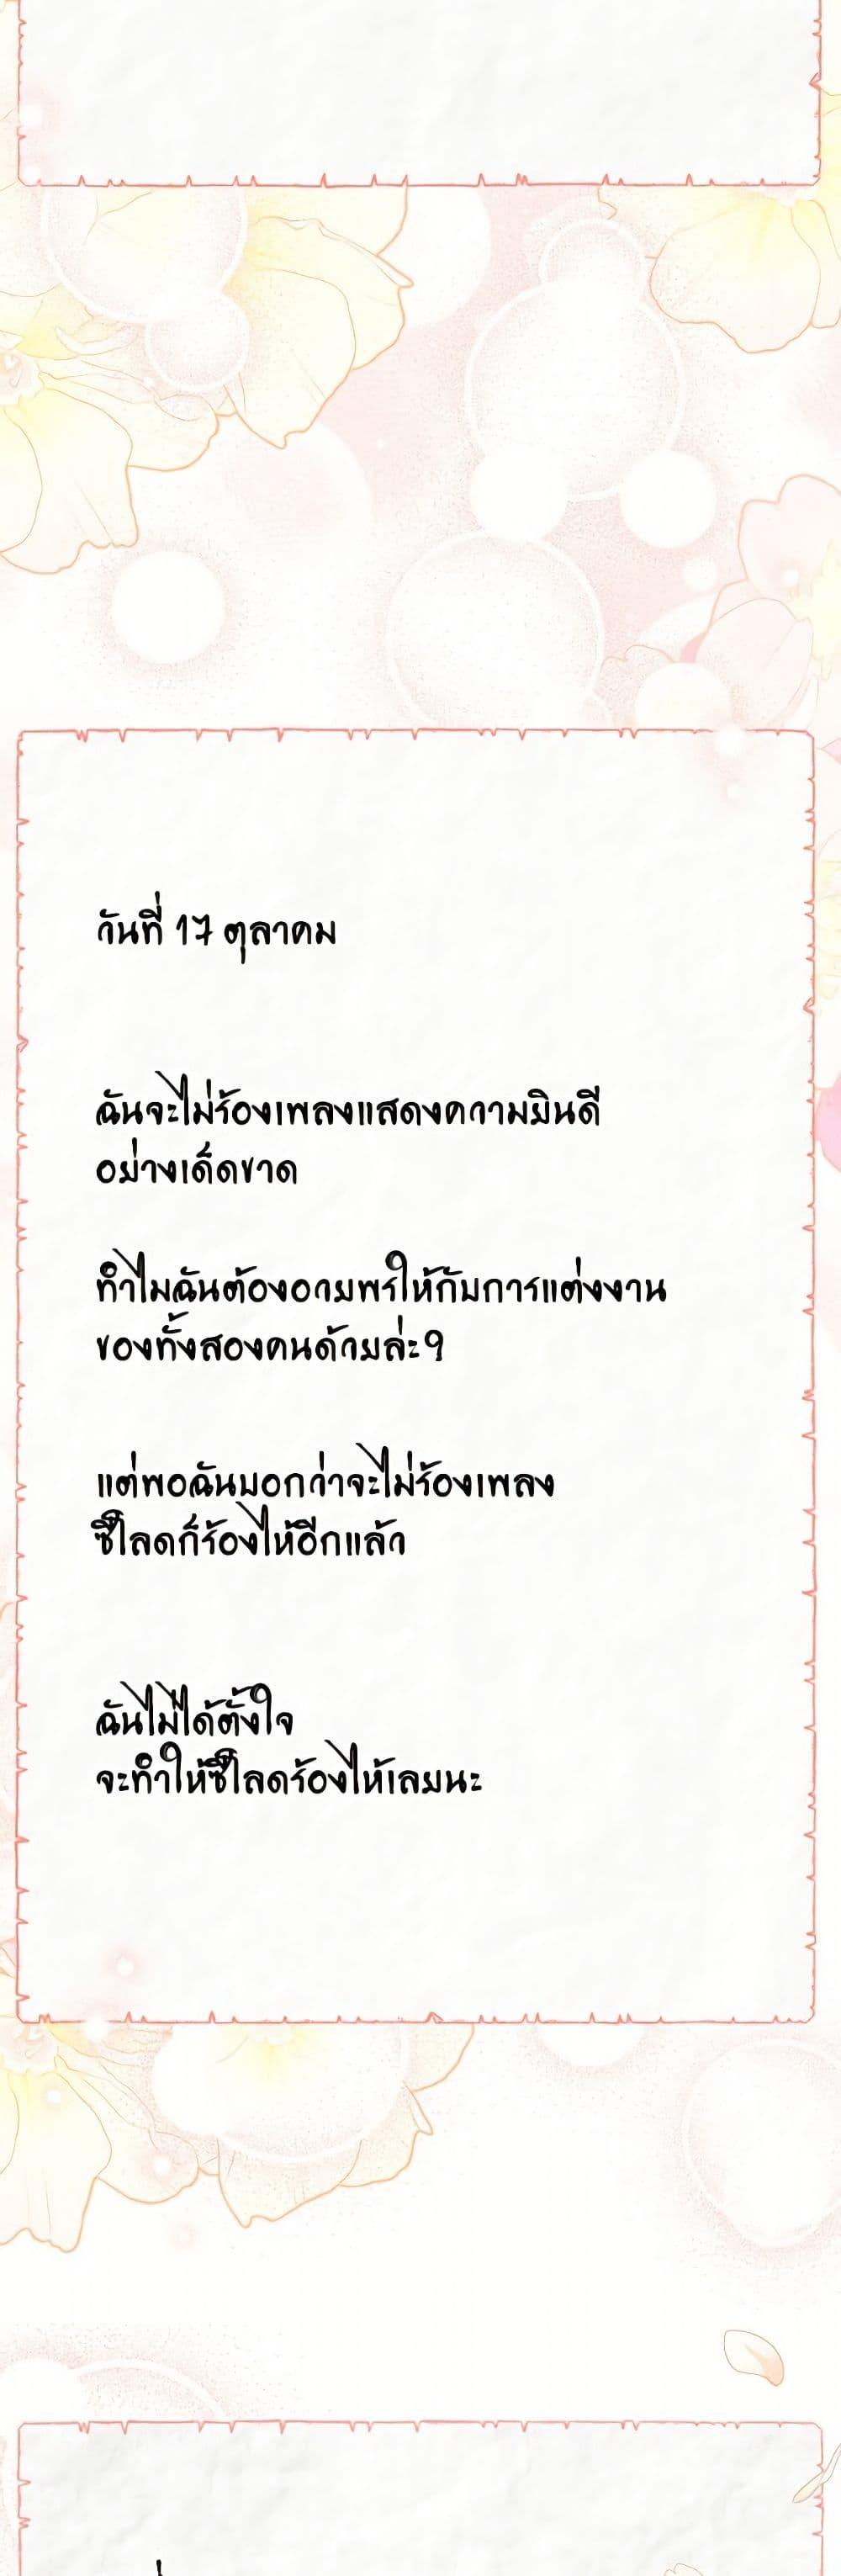 วันที่ 17 ตุลาคม
ฉันจะไม่ร้องเพลงแสดงความยินดี
อย่างเด็ดขาด
ทำไมฉันต้องอวยพรให้กับการแต่งงาน
ของทั้งสองคนด้วยล่ะ?
แต่พอฉันบอกว่าจะไม่ร้องเพลง
ซีโลดก็ร้องไห้อีกแล้ว
ฉันไม่ได้ตั้งใจ
จะทำให้ซีโลดร้องไห้เลยนะ